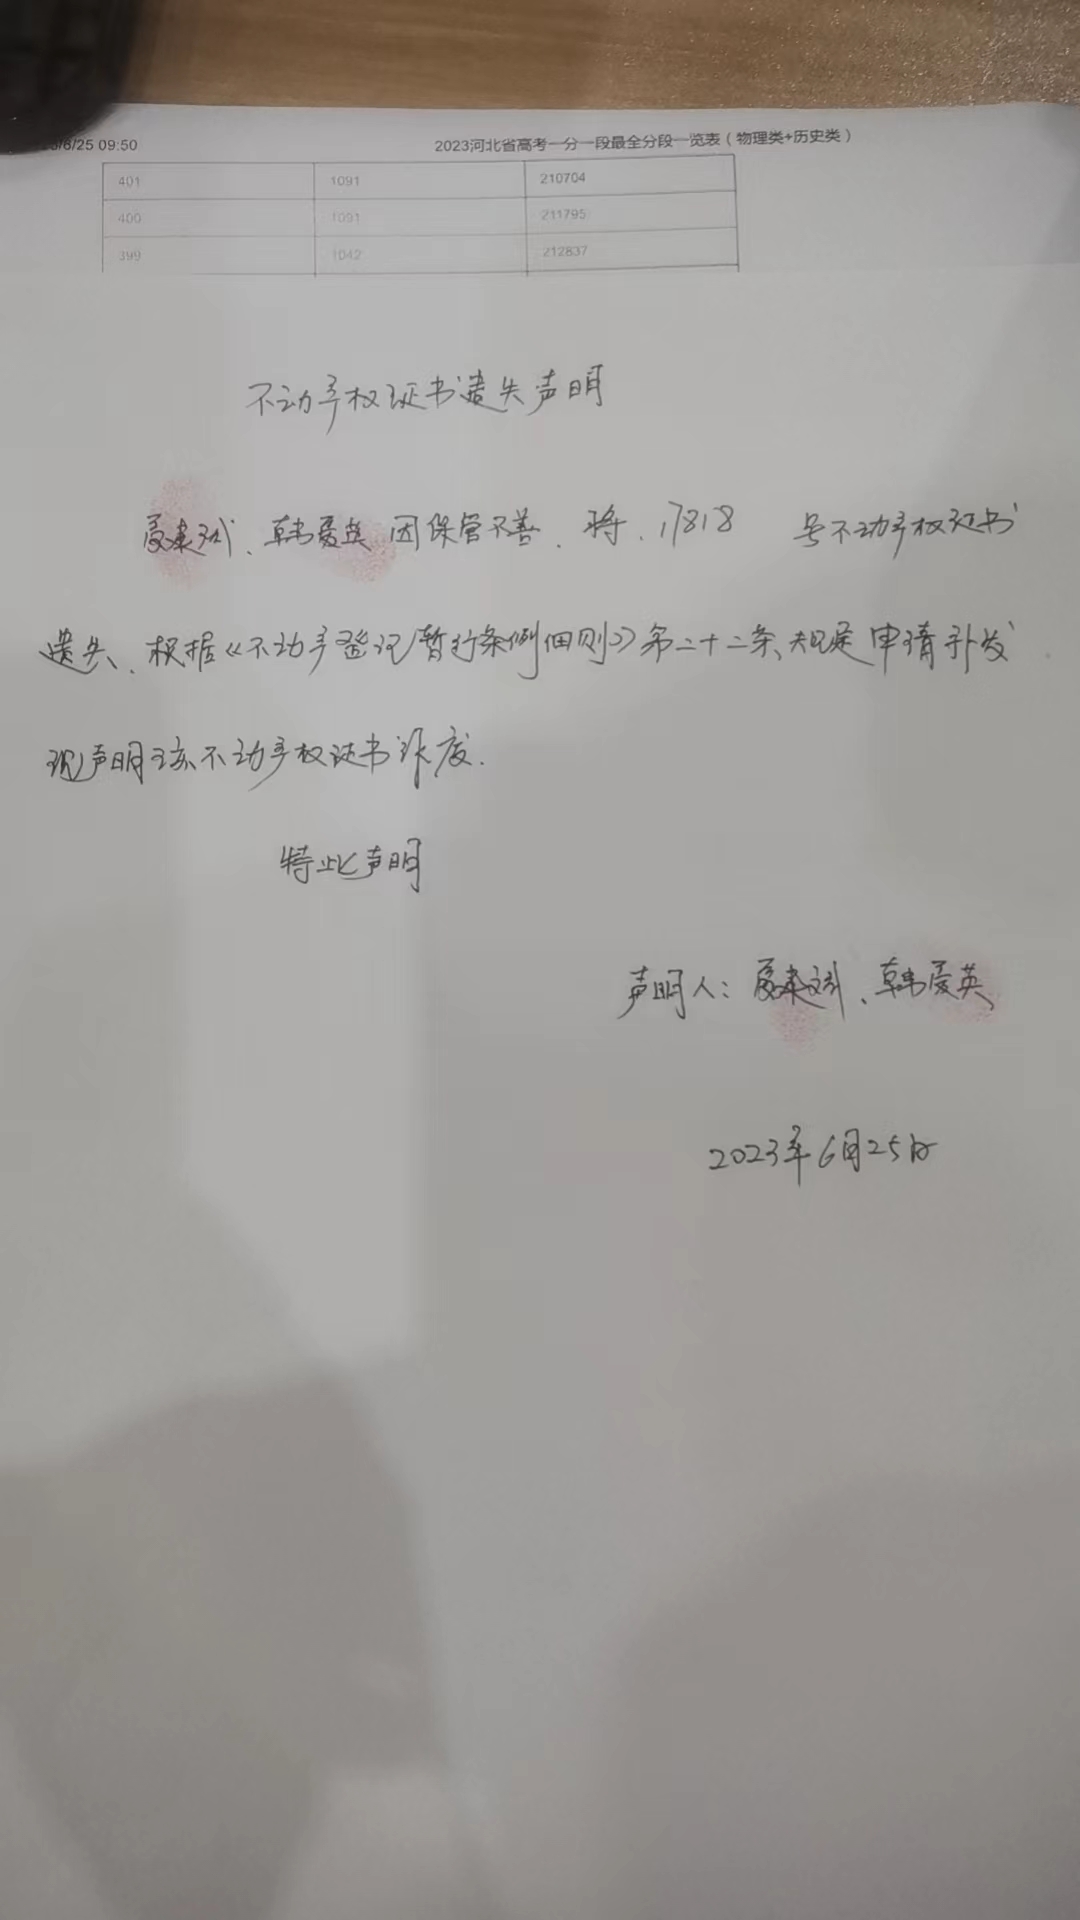 /6/25 09:50 2023河北省高考一分一段最全分段一览表（物理类+历史类）
401 1091 210704
400 1091 211795
399 1042 212837
不动产权证书遗失声明
夏建斌、韩爱英因保管不善、将、17818 号不动产权证书
遗失、根据《不动产登记暂行条例细则》第二十二条、规定申请补发
现声明该不动产权证书作废.
特此声明
声明人：夏建斌、韩爱英
2023年6月25日